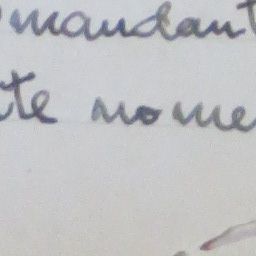 mandant
te nome